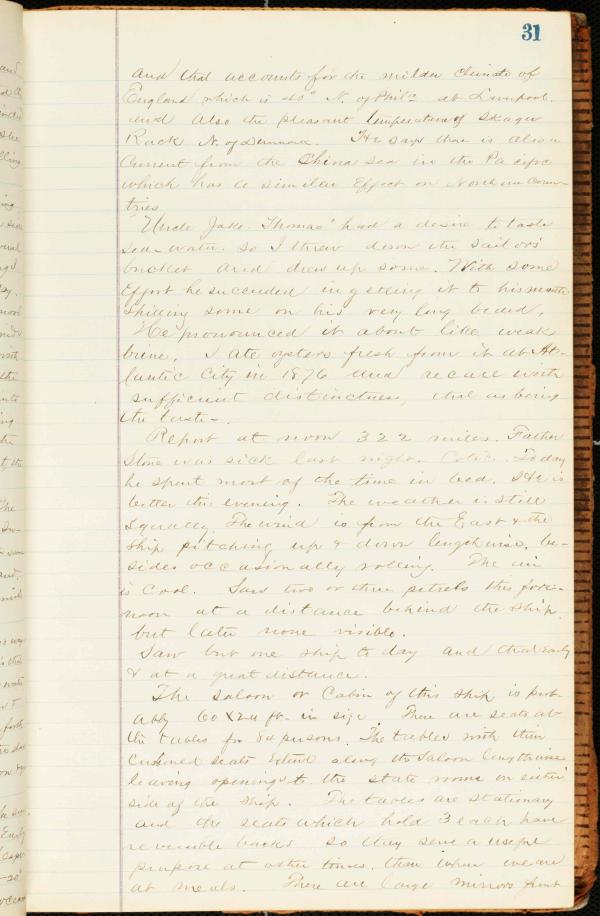 31
and that accounts for the milder climate of
England which is 10° N. of Phila at Liverpool.
and also the pleasant temperature of Skager
Rack N. of Denmark. He says there is also a
Current from the China Sea in the Pacific
which has a similar effect on Northern Coun-
tries.
"Uncle Jake Thomas" had a desire to taste
sea-water. so I threw down the sailors'
bucket and drew up some. With some
effort he succeeded in getting it to his mouth
spilling some on his very long beard.
He pronounced it about like weak
brine. I ate oysters fresh from it at At-
lantic City in 1876 and recall with
sufficient distinctness, that as being
the taste.
Report at noon 322 miles. Father
Stone was sick last night. Colic. Today
he spent most of the time in bed. He is
better this evening. The weather is still
squally. The wind is from the East & the
ship pitching up & down lengthwise, be-
sides occasionally rolling. The air
is cool. Saw two or three petrels this fore-
noon at a distance behind the ship.
but later none visible.
Saw but one ship to day and that early
& at a great distance.
The Saloon or Cabin of this ship is prob-
ably 60 X 24 ft. in size. There are seats at
the tables for 84 persons. The tables with their
cushioned seats extend along the Saloon lengthwise
leaving openings to the state rooms on either
side of the ship. The tables are stationary
and the seats which hold 3 each have
reversible backs so they serve a useful
purpose at other times, than when we are
at meals. There are large mirrors front